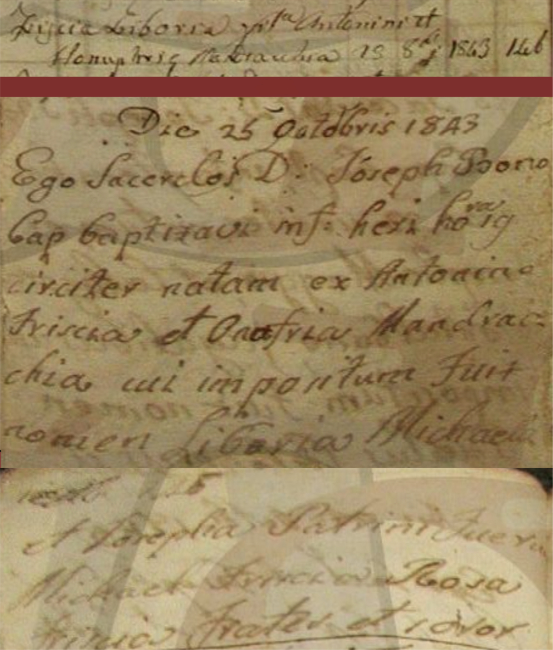 Friscia Liboria filia Antonini et
Honuphrie Mandracchia 25 8bris 1843 146
Die 25 Octobris 1843
Ego Sacerdos D: Joseph Bono
Cap baptizavi inf: heri hora 19
circiter natam ex Antonino
Friscia et Onofria Mandrac-
chia cui impositum Fuit
nomen Liboria Michaela
et Josepha Patrini Fuerunt
Michael Friscia Rosa
Friscia Frater et soror